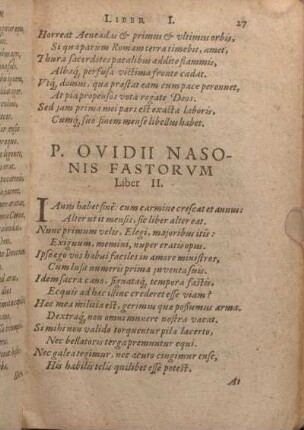 LIBER I. 27
Horreat Aeneadas & primus & vltimus orbis,
Si qua parum Romam terra timebit, amet,
Thura sacerdotes pacalibus addite flammis,
Albaq; perfusa victima fronte cadat.
Vtq; domus, quæ præstat eam cum pace perennet,
At pia propensos vota rogate Deos.
Sed iam prima mei pars est exacta laboris,
Cumq; suo finem mense libellus habet.
P. OVIDII NASO-
NIS FASTORVM
Liber II.
IAnus habet finē: cum carmine crescat et annus:
Alter vt it mensis, sic liber alter eat.
Nunc primum velis, Elegi, maioribus itis:
Exiguum, memini, nuper eratis opus.
Ipse ego vos habui faciles in amore ministros,
Cum lusit numeris prima iuuenta suis.
Idem sacra cano, signataq; tempora fastis,
Ecquis ad hæc illinc crederet esse viam?
Hæc mea militia est, gerimus quæ possumus arma,
Dextraq; non omni munere nostra vacat.
Si mihi non valido torquentur pila lacerto,
Nec bellatoris terga premuntur equi.
Nec galea tegimur, nec acuto cingimur ense,
His habilis telis quilibet esse potest.
At